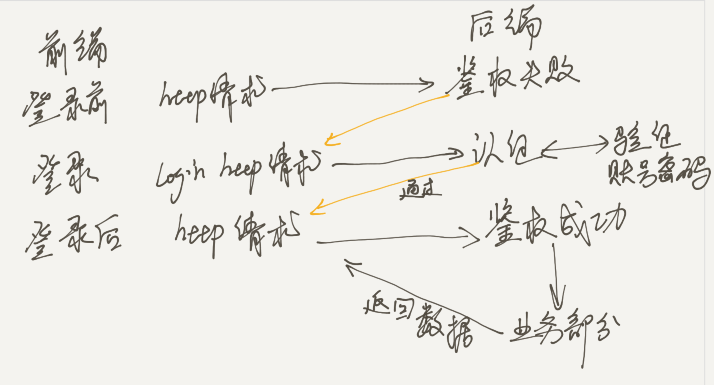 前端
后端
登录前 http请求 鉴权失败
登录 login http请求 认证 验证
账号密码
通过
登录后 http请求 鉴权成功
返回数据 业务部分